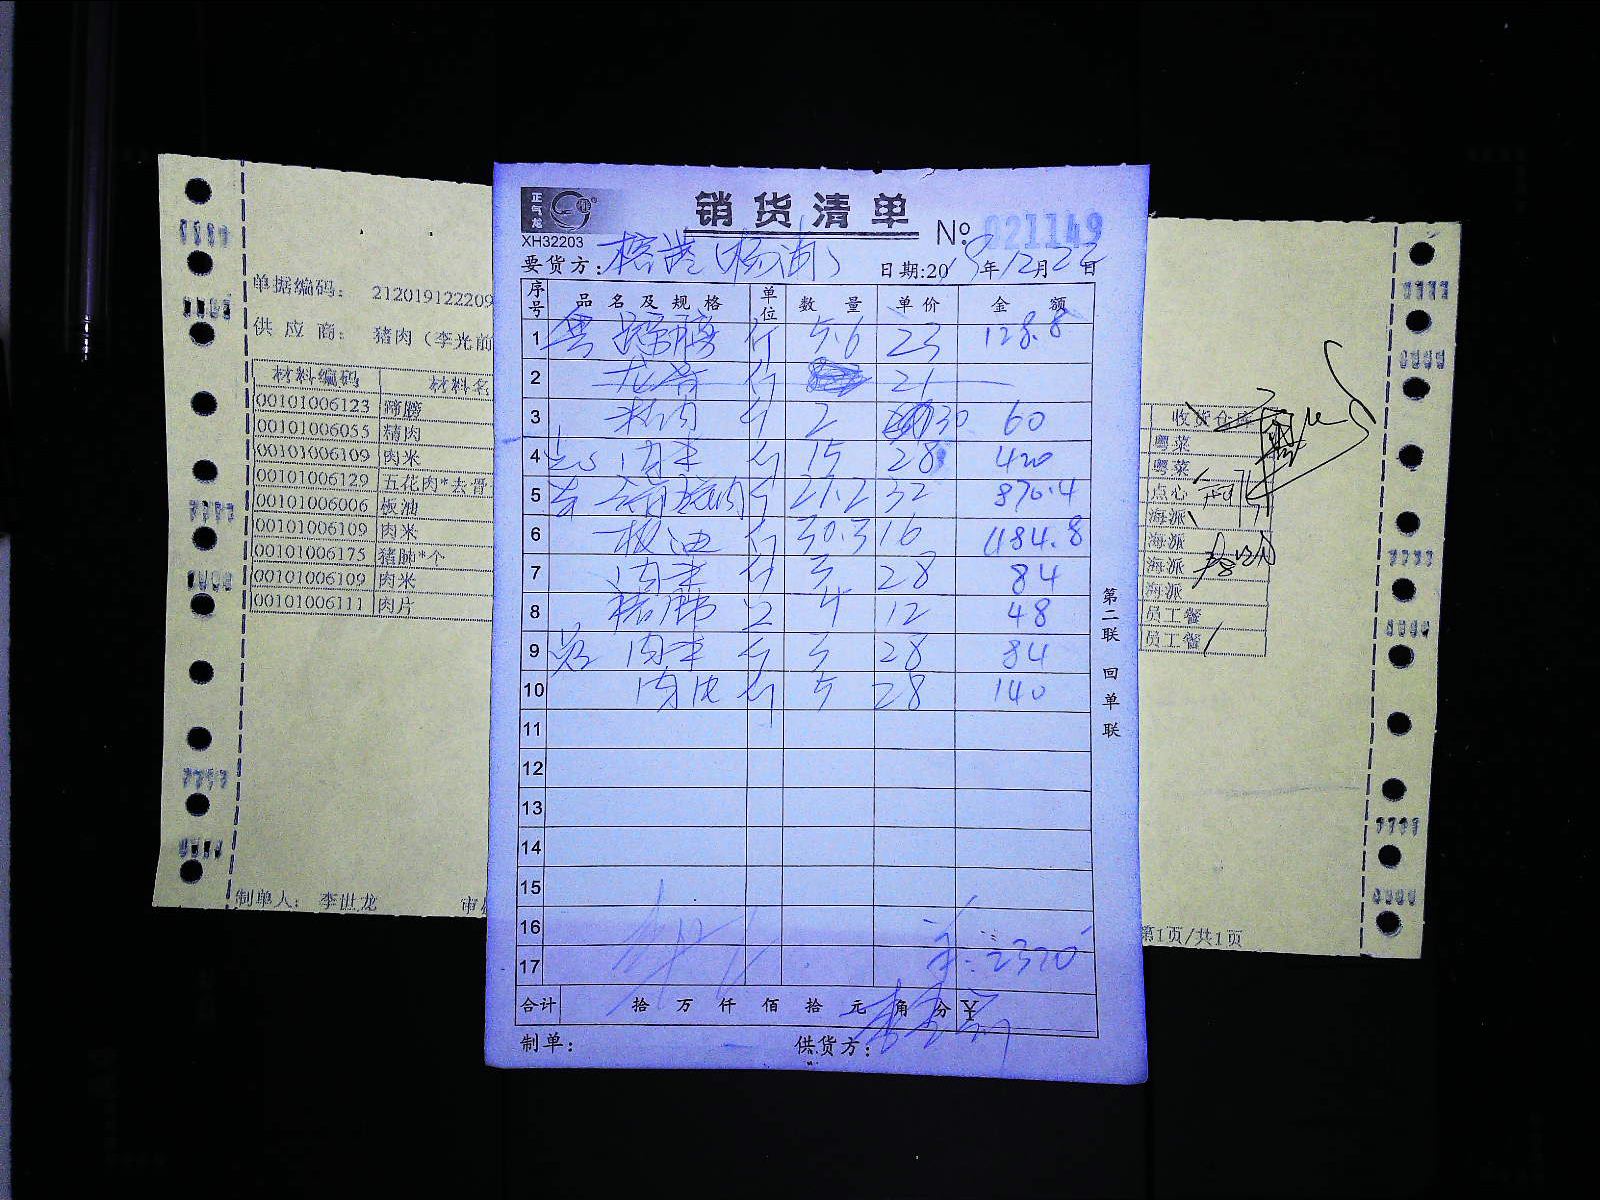 正气龙
销货清单
XH32203
No 021149
要货方：
日期:2019年12月22日
单据编码： 212019122209
供 应 商： 猪肉（李光前
材料编码 材料名
00101006123 蹄膀
00101006055 精肉
00101006109 肉米
00101006129 五花肉*去骨
00101006006 板油
00101006109 肉米
00101006175 猪肺*个
00101006109 肉米
00101006111 肉片
制单人： 李世龙
序号 品名及规格 单位 数量 单价 金额
1 粤 蹄膀 斤 5.6 23 128.8
2 龙骨 斤 21
3 精肉 斤 2 30 60
4 点心 肉米 斤 15 28 420
5 斤 27.2 32 870.4
6 板油 斤 30.3 16 484.8
7 肉米 斤 3 28 84
8 猪肺 只 4 12 48
9 肉米 斤 3 28 84
10 肉片 斤 5 28 140
11
12
13
14
15
16
17 2320
合计 拾 万 仟 佰 拾 元 角 分 ￥
制单：
供货方：
第二联 回单联
收货仓库
粤菜
粤菜
点心
海派
海派
海派
海派
员工餐
员工餐
第1页/共1页